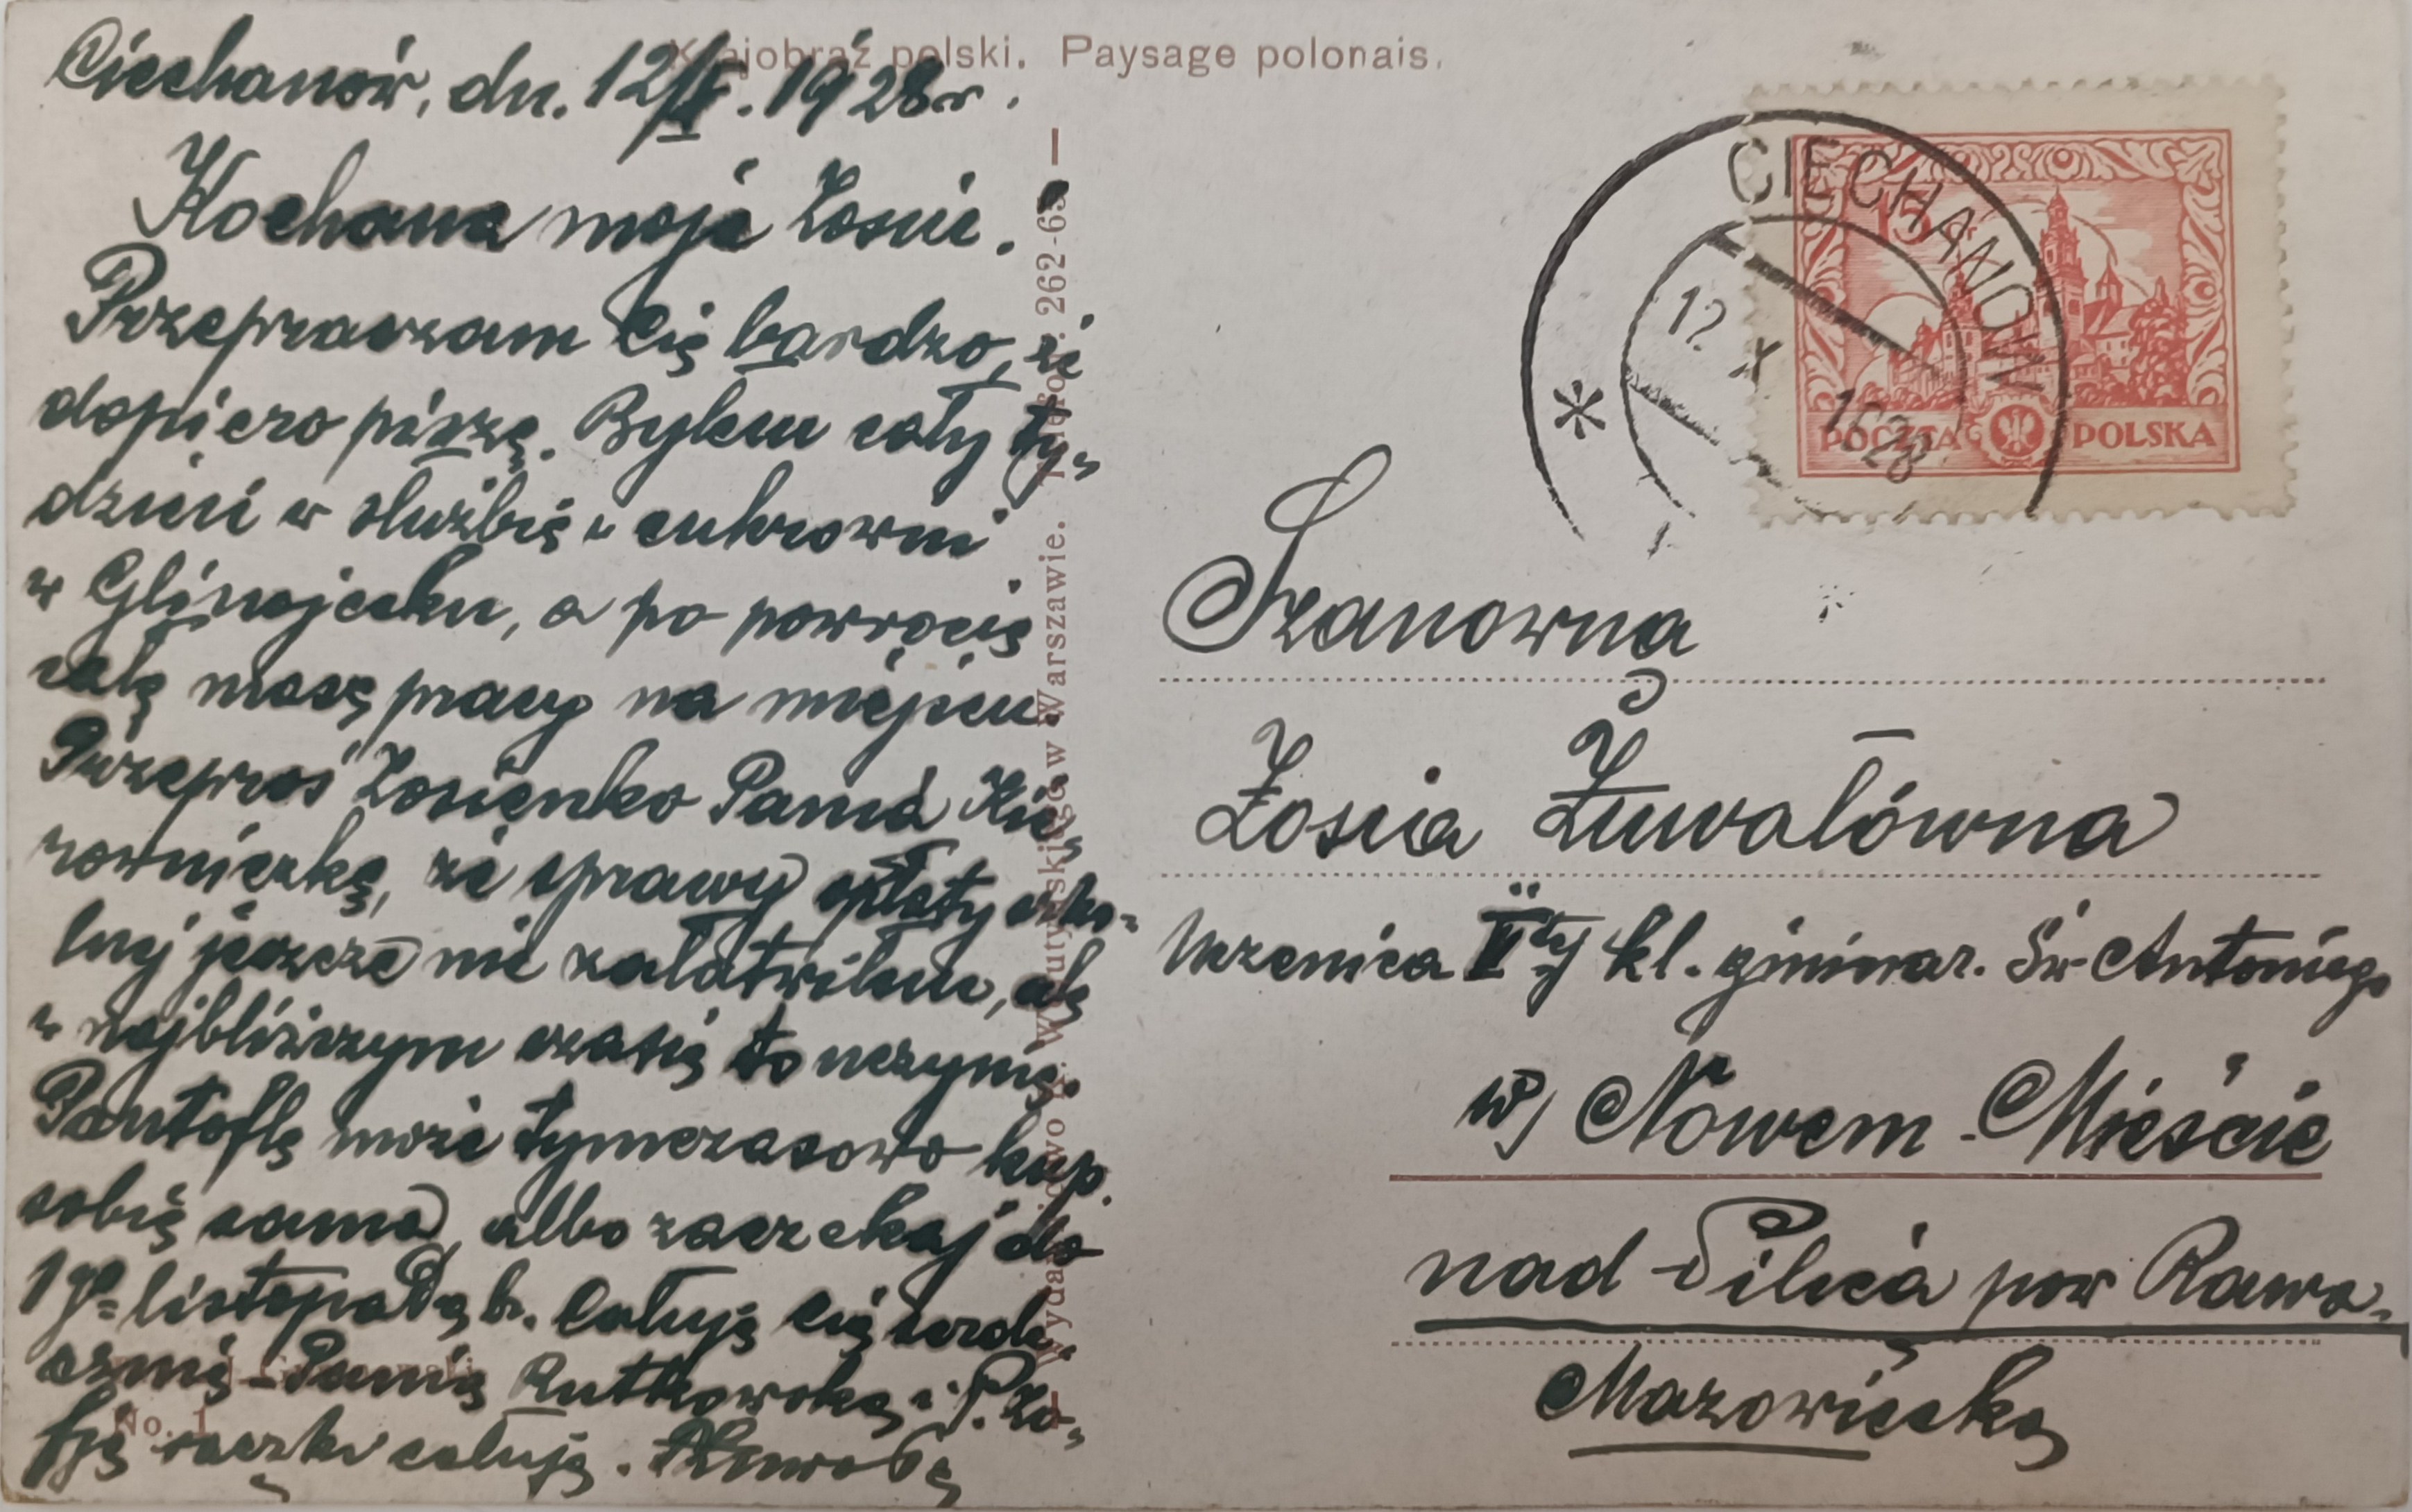 Krajobraz polski. Paysage polonais.
Ciechanów, dn. 12/X. 1928 r.
Kochana moja Zosiu.
Przepraszam Cię bardzo, że
dopiero piszę. Byłem cały ty„
dzień w służbie w cukrowni
w Glinojecku, a po powrocie
całą masę pracy na miejscu.
Przeproś Zosieńko Panią Kie„
rowniczkę, że sprawy opłaty szko-
lnej jeszcze nie załatwiłem, ale
w najbliższym czasie to uczynię.
Pantofle może tymczasowo kup
sobie sama, albo zaczekaj do
1go listopada b.r. Całuję Cię serde„
cznie – Panią Rutkowską i P. Zo„
fję rączki całuję.
No. 1
Wydawnictwo Warszawie. 262-63
CIECHANÓW
12. X 1928
15
POCZTA POLSKA
Szanowna
Zosia Zuwałówna
Uczenica II ej kl. gimnaz. Św. Antoniego
w Nowem-Mieście
nad Pilicą pow Rawa-
Mazowiecka